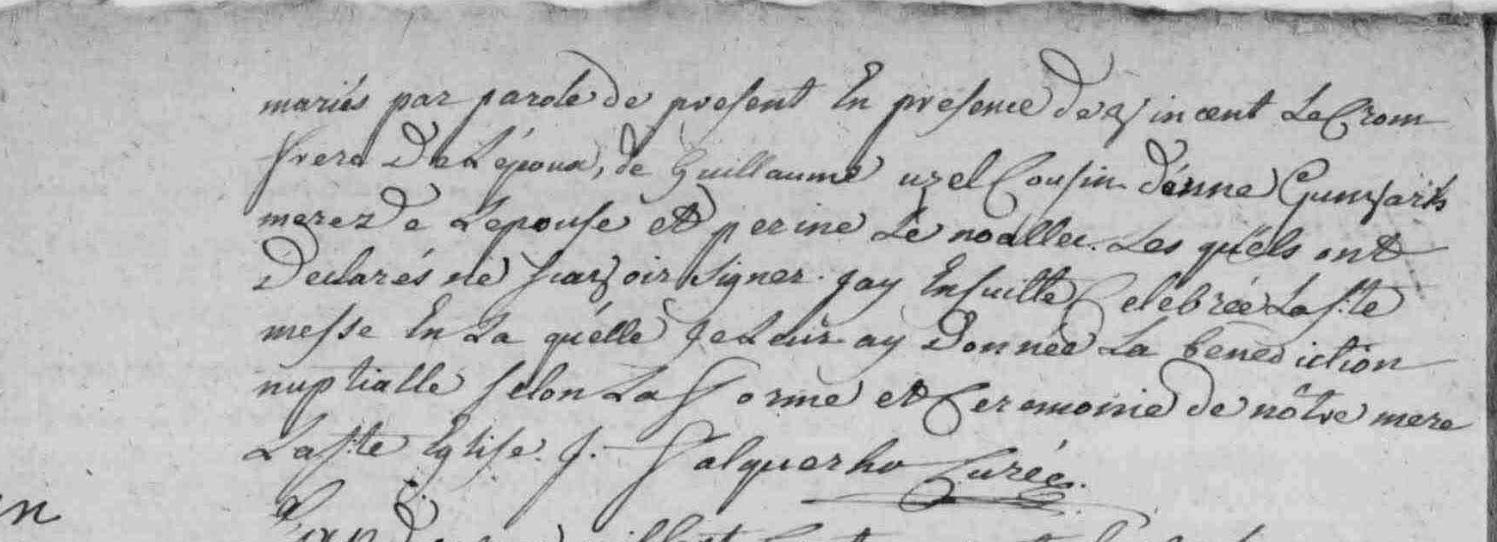 mariés par parole de present En presence de vincent Le Crom
frere De Lépoux, de Guillaume uzel Cousin d'énne Guinvarch
mere de Lepouse et perine Le noallec. Les quels ont
Declarés ne sçavoir signer. jay Ensuitte Celebrée La ste
messe En La quélle je Leur ay Donnée La benediction
nuptialle selon La forme et Ceremoinie de nôtre mere
La ste Eglise. J. Falquerho Curée.